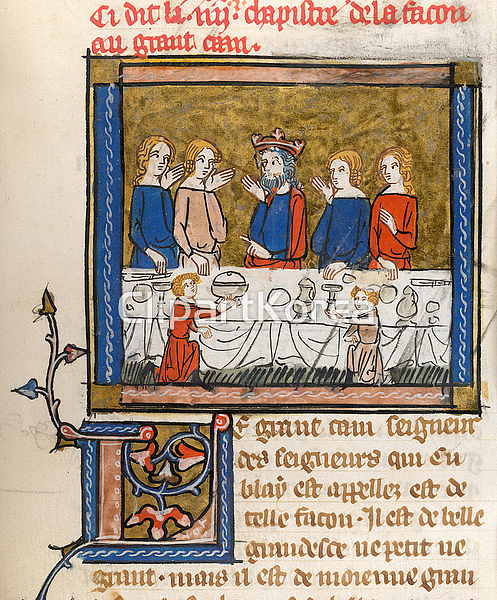 Ci dit le .iiij. chapistre de la facon
au grant caan.
ClipartKorea
Le grant caan seigneur
des seigneurs qui Cu
blay est appellez est de
telle facon. Il est de belle
grandesce ne petit ne
grant. mais il est de moienne gran